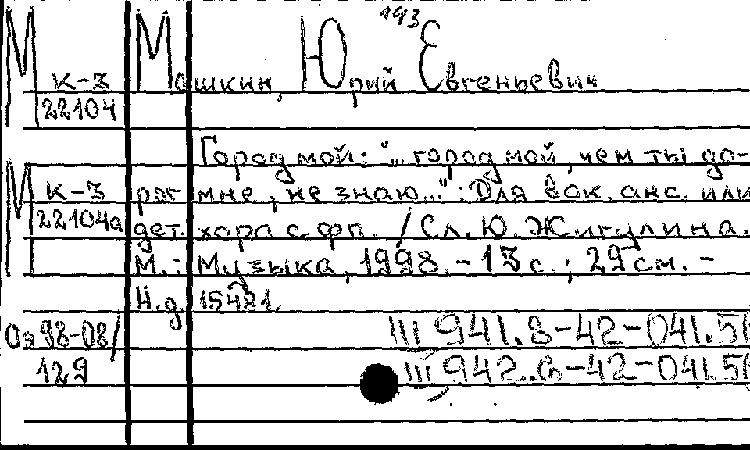 193
М Машкин, Юрий Евгеньевич
К-3
22104
Город мой: "... город мой, чем ты до-
М К-3 рог мне, не знаю...": Для вок. анс. или
22104а дет. хора с фп. / Сл. Ю. Жигулина. 
М.: Музыка, 1998. - 13 с.; 29 см. -
Н.д. 15481.
Оэ 98-08/ III 941.8-42-041.5
129 III 942.